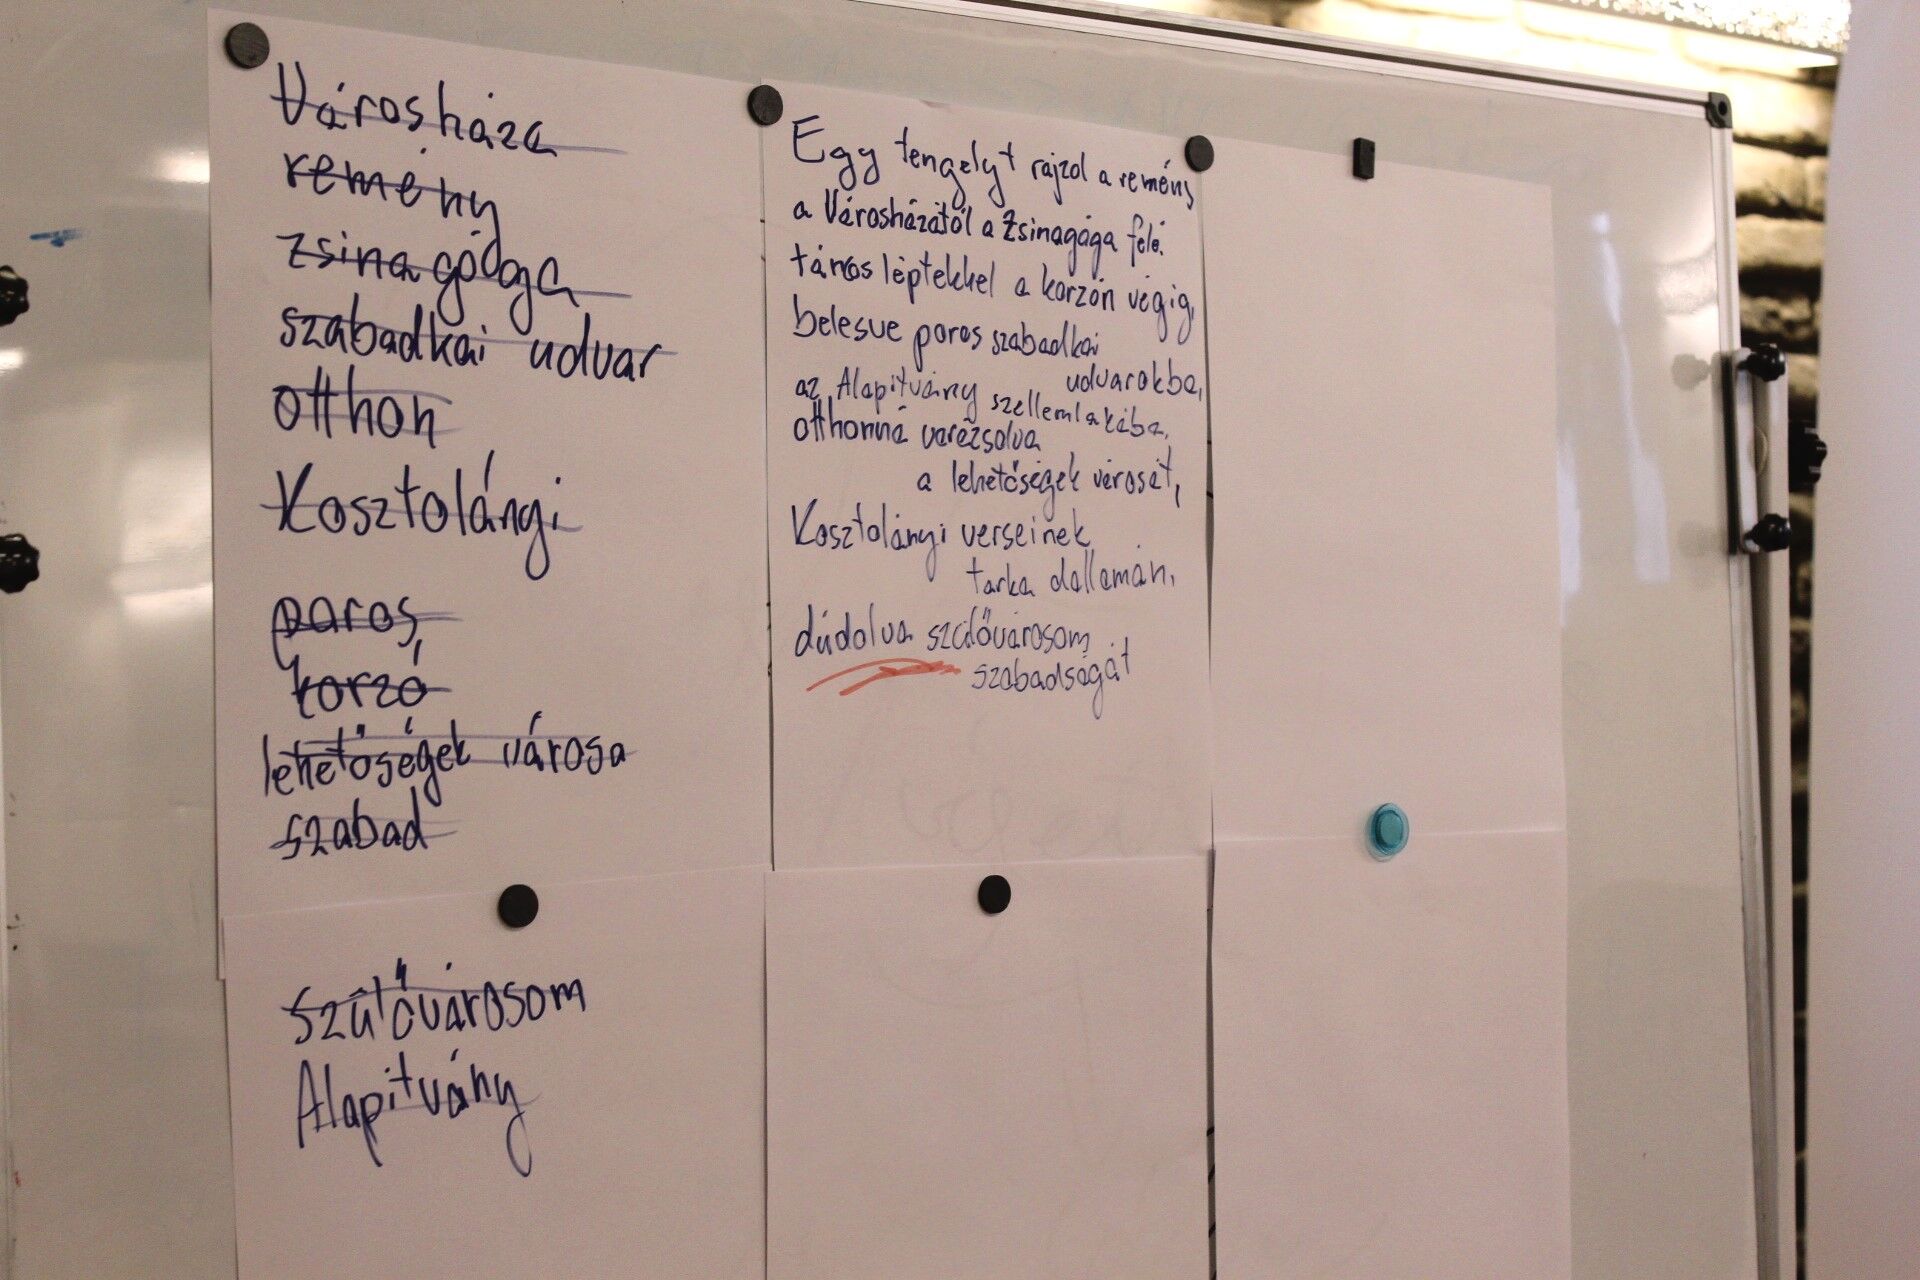 Városháza
remény
zsinagóga
szabadkai udvar
otthon
Kosztolányi
poros,
korzó
lehetőségek városa
szabad
Szülővárosom
Alapitvány
Egy tengelyt rajzol a remény
a Városházától a Zsinagága felé.
táncos léptekkel a korzón végig,
belesve poros szabadkai
udvarokba,
az Alapitvány szellemlakába,
otthonná varázsolva
a lehetőségek városát,
Kosztolányi verseinek
tarka dallamán,
dúdolva szülővárosom
szabadságát